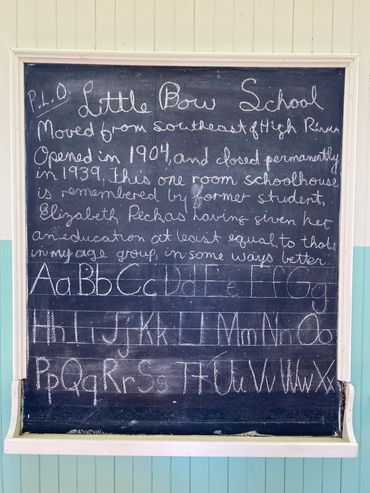 P.L.O. Little Bow School
Moved from southeast of High River
Opened in 1904, and closed permanently
in 1939. This one room schoolhouse
is remembered by former student,
Elizabeth Peck as having given her
an education at least equal to those
in my age group, in some ways better.
Aa Bb Cc Dd Ee Ff Gg
Hh Ii Jj Kk Ll Mm Nn Oo
Pp Qq Rr Ss Tt Uu Vv Ww Xx